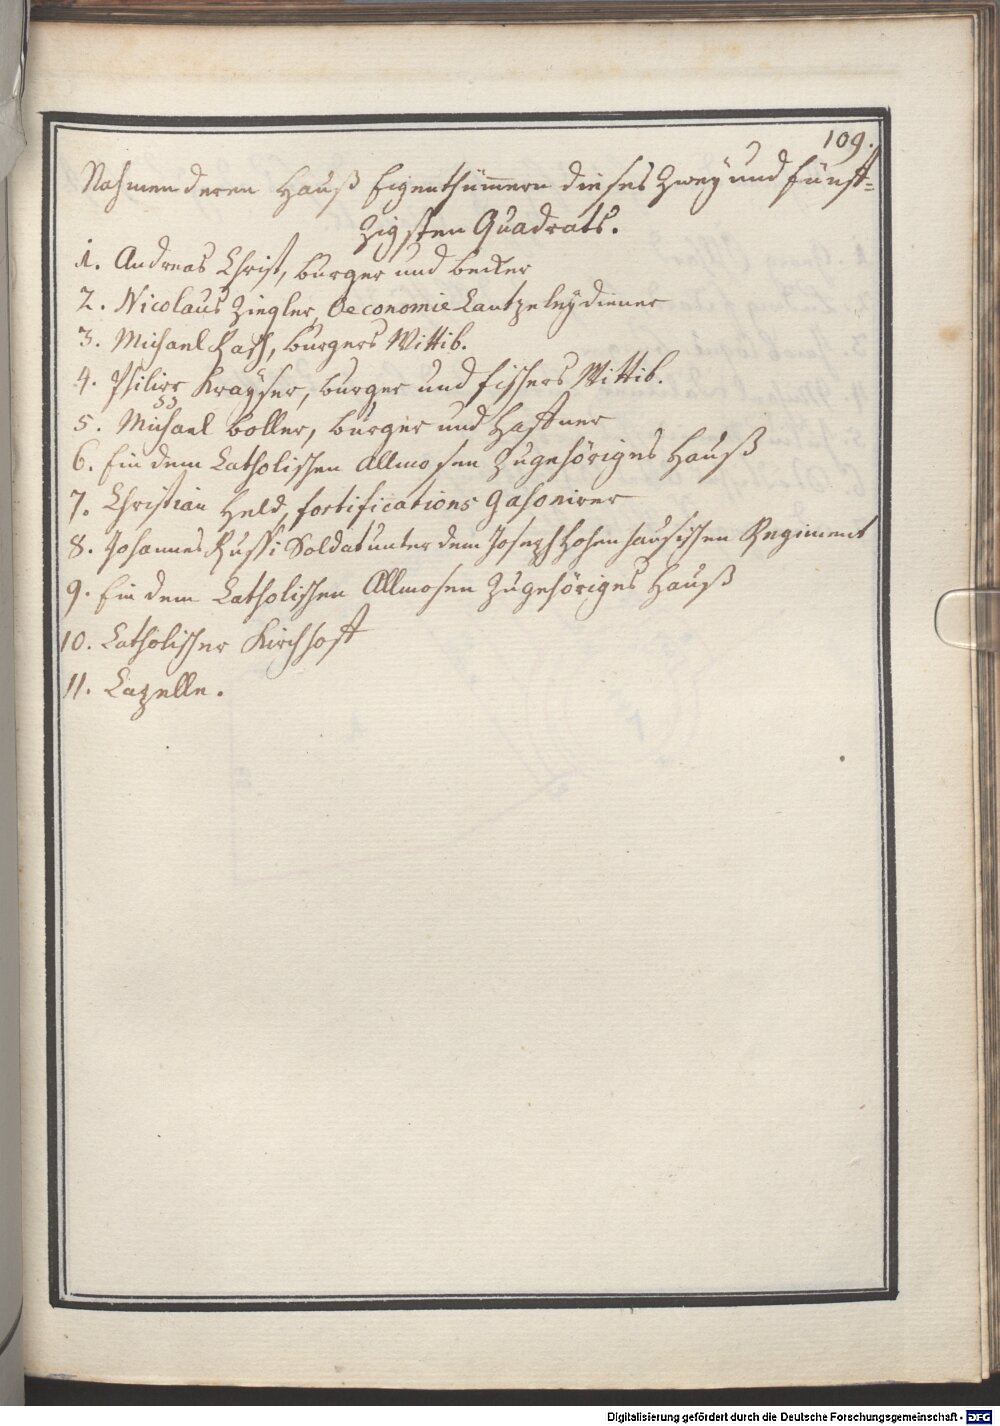 109.
Nahmen deren Hauß Eigenthümern dieses Zweÿ und fünff-
Zigsten Quadrats.
1. Andreas Christ, burger und becker
2. Nicolaus Ziegler, Oeconomie Cantzeleÿdiener
3. Michael burgers Wittib.
4. Philipp Kraÿser, burger und fischers Wittib.
5. Michael boller, burger und Haffner
6. Ein dem Catholischen Allmosen Zugehöriges Hauß
7. Christian Held, fortifications Gasonirer
8. Johannes Russi Soldat unter dem Joseph Hohenhausischen Regiment
9. Ein dem Catholischen Allmosen Zugehöriges Hauß
10. Catholischer Kirchhoff
11. Capelle.
Digitalisierung gefördert durch die Deutsche Forschungsgemeinschaft - DFG